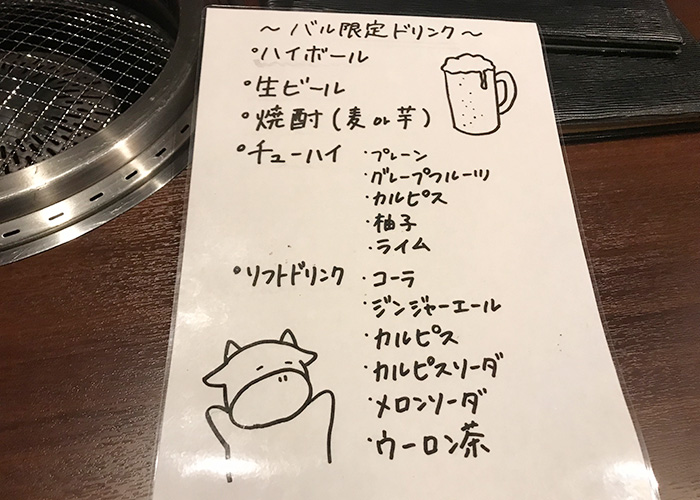 ～バル限定ドリンク～
・ハイボール
・生ビール
・焼酎(麦or芋)
・チューハイ ・プレーン
・グレープフルーツ
・カルピス
・柚子
・ライム
・ソフトドリンク ・コーラ
・ジンジャーエール
・カルピス
・カルピスソーダ
・メロンソーダ
・ウーロン茶